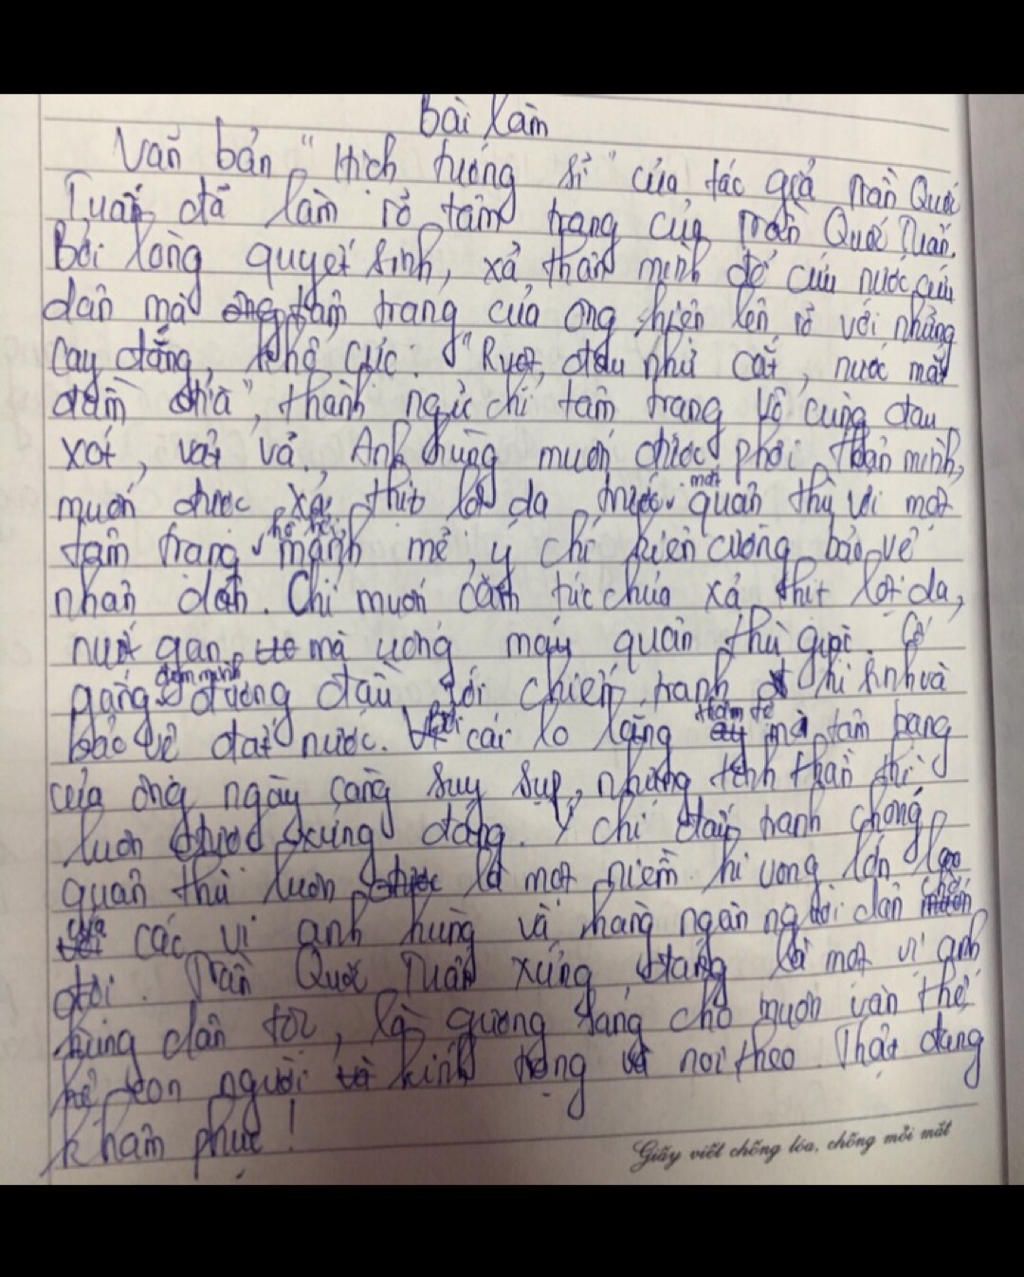 Bài làm
Văn bản "Hịch tướng sĩ" của tác giả Trần Quốc
Tuấn đã làm rõ tâm trạng của Trần Quốc Tuấn.
Bởi lòng quyết sinh, xả thân mình để cứu nước, cứu
dân mà tâm trạng của ông hiện lên rõ với những
cay đắng, khổ cực. "Ruột đau như cắt, nước mắt
đầm đìa", thành ngữ chỉ tâm trạng vô cùng đau
xót, vất vả. Anh hùng muốn được phơi thân mình,
muốn được xả thịt lột da trước một quân thù với một
tâm trạng mạnh mẽ, ý chí kiên cường bảo vệ
nhân dân. Chỉ muốn căm tức chưa xả thịt lột da,
nuốt gan mà uống máu quân thù giặc. Cố
gắng đảm mình đương đầu với chiến tranh hi sinh và
bảo vệ đất nước. Bởi cái lo lắng thậm tệ mà tâm trạng
của ông ngày càng suy sụp, nhưng tinh thần thì
luôn xứng đáng. Ý chí đấu tranh chống
quân thù luôn là một niềm hi vọng lớn lao
của các vị anh hùng và hàng ngàn người dân chờ
đợi. Trần Quốc Tuấn xứng đáng là một vị anh
hùng dân tộc, là gương sáng cho muôn vàn thế
hệ con người kính trọng và noi theo. Thật đáng
khâm phục!
Giấy viết chống lóa, chống mỏi mắt